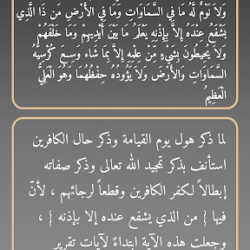 وَلَا نَوْمٌ لَّهُ مَا فِي السَّمَاوَاتِ وَمَا فِي الْأَرْضِ مَن ذَا الَّذِي
يَشْفَعُ عِنْدَهُ إِلَّا بِإِذْنِهِ يَعْلَمُ مَا بَيْنَ أَيْدِيهِمْ وَمَا خَلْفَهُمْ
وَلَا يُحِيطُونَ بِشَيْءٍ مِّنْ عِلْمِهِ إِلَّا بِمَا شَاءَ وَسِعَ كُرْسِيُّهُ
السَّمَاوَاتِ وَالْأَرْضَ وَلَا يَئُودُهُ حِفْظُهُمَا وَهُوَ الْعَلِيُّ
الْعَظِيمُ
لما ذكر هول يوم القيامة وذكر حال الكافرين
استأنف بذكر تمجيد الله تعالى وذكر صفاته
إبطالاً لكفر الكافرين وقطعاً لرجائهم ، لأنّ
فيها { من ذا الذي يشفع عنده إلا بإذنه } ،
وجعلت هذه الآية ابتداءً لآيات تقرير